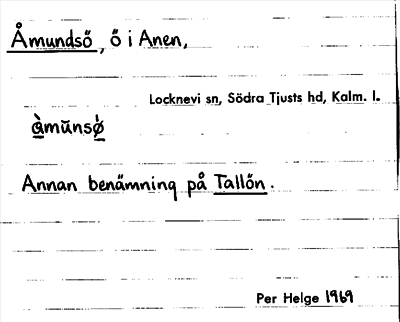 Åmundsö, ö i Anen,
Locknevi sn, Södra Tjusts hd, Kalm. l.
ằmŭnsø̀
Annan benämning på Tallön.
Per Helge 1969